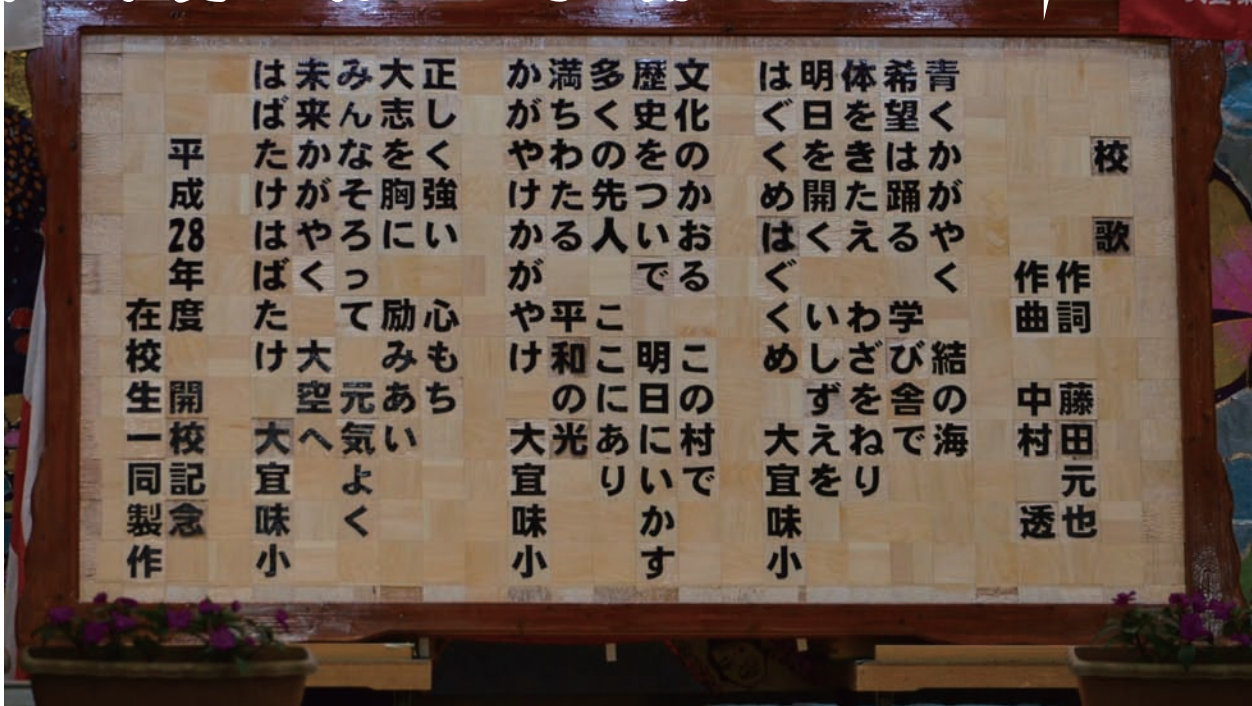 校歌
作詞 藤田元也
作曲 中村 透
青くかがやく 結の海
希望は踊る 学び舎で
体をきたえ わざをねり
明日を開く いしずえを
はぐくめはぐくめ 大宜味小
文化のかおる この村で
歴史をついで 明日にいかす
多くの先人 ここにあり
満ちわたる 平和の光
かがやけかがやけ 大宜味小
正しく強い 心もち
大志を胸に 励みあい
みんなそろって 元気よく
未来かがやく 大空へ
はばたけはばたけ 大宜味小
平成28年度 開校記念
在校生一同製作